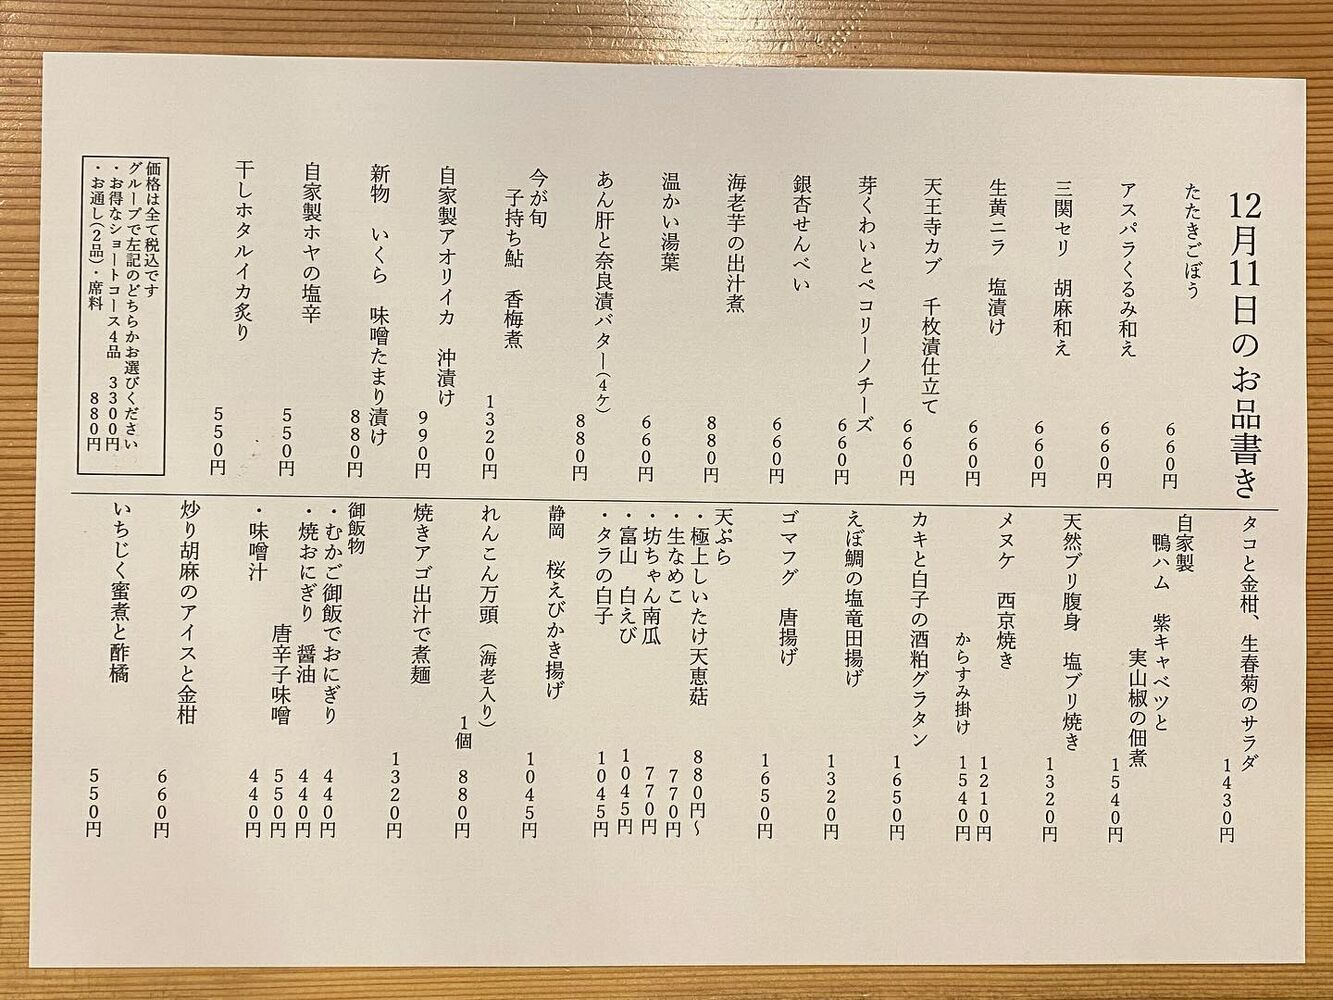 12月11日のお品書き
たたきごぼう
660円
アスパラくるみ和え
660円
三関セリ 胡麻和え
660円
生黄ニラ 塩漬け
660円
天王寺カブ 千枚漬仕立て
660円
芽くわいとペコリーノチーズ
660円
銀杏せんべい
660円
海老芋の出汁煮
880円
温かい湯葉
660円
あん肝と奈良漬バター(4ケ)
880円
今が旬
子持ち鮎 香梅煮
1320円
自家製アオリイカ 沖漬け
990円
新物 いくら 味噌たまり漬け
880円
自家製ホヤの塩辛
550円
干しホタルイカ炙り
550円
価格は全て税込です
グループで左記のどちらかお選びください
・お得なショートコース4品 3300円
・お通し(2品)・席料 880円
タコと金柑、生春菊のサラダ
1430円
自家製
鴨ハム 紫キャベツと
実山椒の佃煮
1540円
天然ブリ腹身 塩ブリ焼き
1320円
メヌケ 西京焼き
1210円
からすみ掛け
1540円
カキと白子の酒粕グラタン
1650円
えぼ鯛の塩竜田揚げ
1320円
ゴマフグ 唐揚げ
1650円
天ぷら
・極上しいたけ天恵菇 880円〜
・生なめこ 770円
・坊ちゃん南瓜 770円
・富山 白えび 1045円
・タラの白子 1045円
静岡 桜えびかき揚げ
1045円
れんこん万頭 (海老入り)
1個 880円
焼きアゴ出汁で煮麺
1320円
御飯物
・むかご御飯でおにぎり 440円
・焼おにぎり 醤油 440円
唐辛子味噌 550円
・味噌汁 440円
炒り胡麻のアイスと金柑
660円
いちじく蜜煮と酢橘
550円